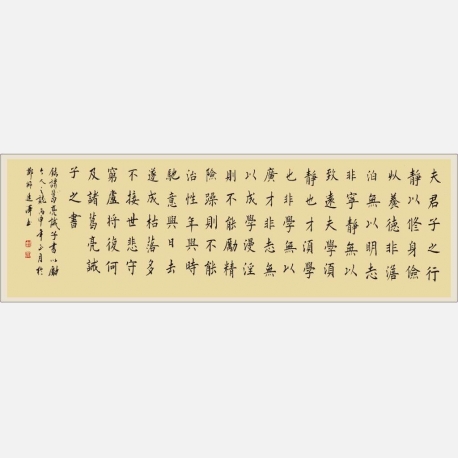 夫君子之行
靜以修身儉
以養德非澹
泊無以明志
非寧靜無以
致遠夫學須
靜也才須學
也非學無以
廣才非志無
以成學漫淫
則不能勵精
險躁則不能
治性年與時
馳意與日去
遂成枯落多
不接世悲守
窮廬將復何
及諸葛亮誡
子之書
錄諸葛亮誡子書以
丙申年正月於
鄭州